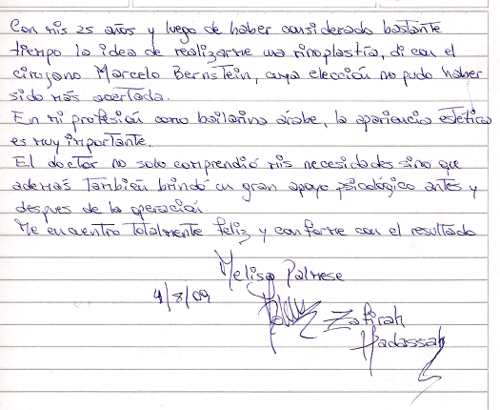 Con mis 25 años y luego de haber considerado bastante
tiempo la idea de realizarme una rinoplastía, di con el
cirujano Marcelo Bernstein, cuya elección no pudo haber
sido más acertada.
En mi profesión como bailarina árabe, la apariencia estética
es muy importante.
El doctor no solo comprendió mis necesidades sino que
además también brindó un gran apoyo psicológico antes y
despues de la operación
Me encuentro totalmente feliz y conforme con el resultado
Melisa Palmese
4/8/09
Zafirah
Hadassah